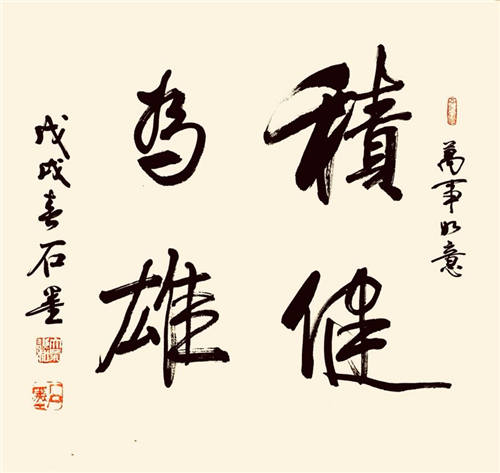 萬事如意
積健
為雄
戊戌春石墨